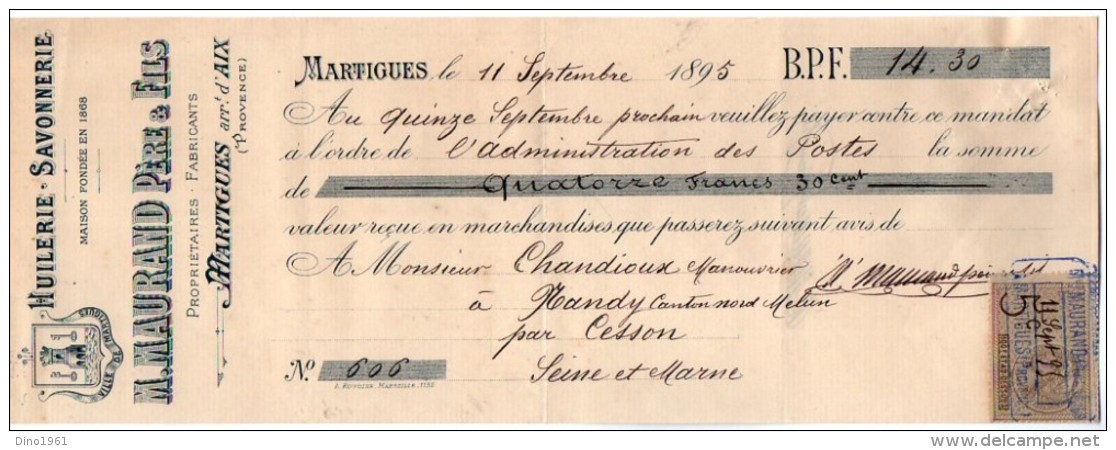 HUILERIE · SAVONNERIE
MAISON FONDÉE EN 1868
M. MAURAND PÈRE & FILS
PROPRIÉTAIRES · FABRICANTS
MARTIGUES arrt. d'AIX
(PROVENCE)
VILLE DE MARTIGUES
MARTIGUES, le 11 Septembre 1895 B.P.F. 14.30
Au quinze Septembre prochain veuillez payer contre ce mandat
à l'ordre de l'administration des Postes la somme
de quatorze Francs 30 cent
valeur reçue en marchandises que passerez suivant avis de
A Monsieur Chandioux Manouvrier
à Nandy Canton nord Melun
par Cesson
Seine et Marne
No. 606
MAURAND
5c
11 Sept 95
Dino1961
delcampe.net